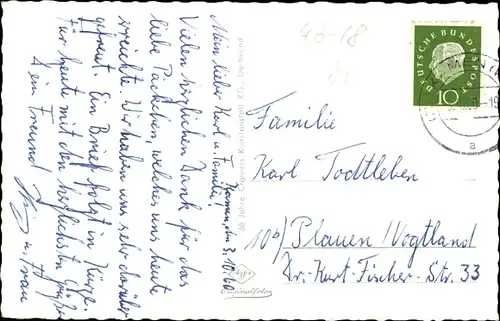 Kamen, den 3.10.60
Mein lieber Karl u. Familie!
Vielen herzlichen Dank für das
liebe Päckchen, welches uns heute
erreichte. Wir haben uns sehr darüber
gefreut. Ein Brief folgt in Kürze.
Für heute mit den herzlichsten Grüßen
Dein Freund
u. Frau
60 Jahre Cramers Kunstanstalt KG., Dortmund
Originalfoto
48-18
DEUTSCHE BUNDESPOST
10
a
Familie
Karl Todtleben
10b/ Plauen/Vogtland
Dr.-Kurt-Fischer-Str. 33